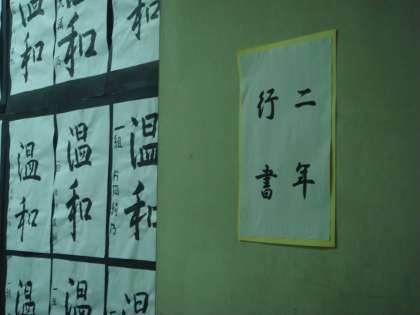 二年
行書
温和
温和
温和
温和
温和
一組
温
温
温